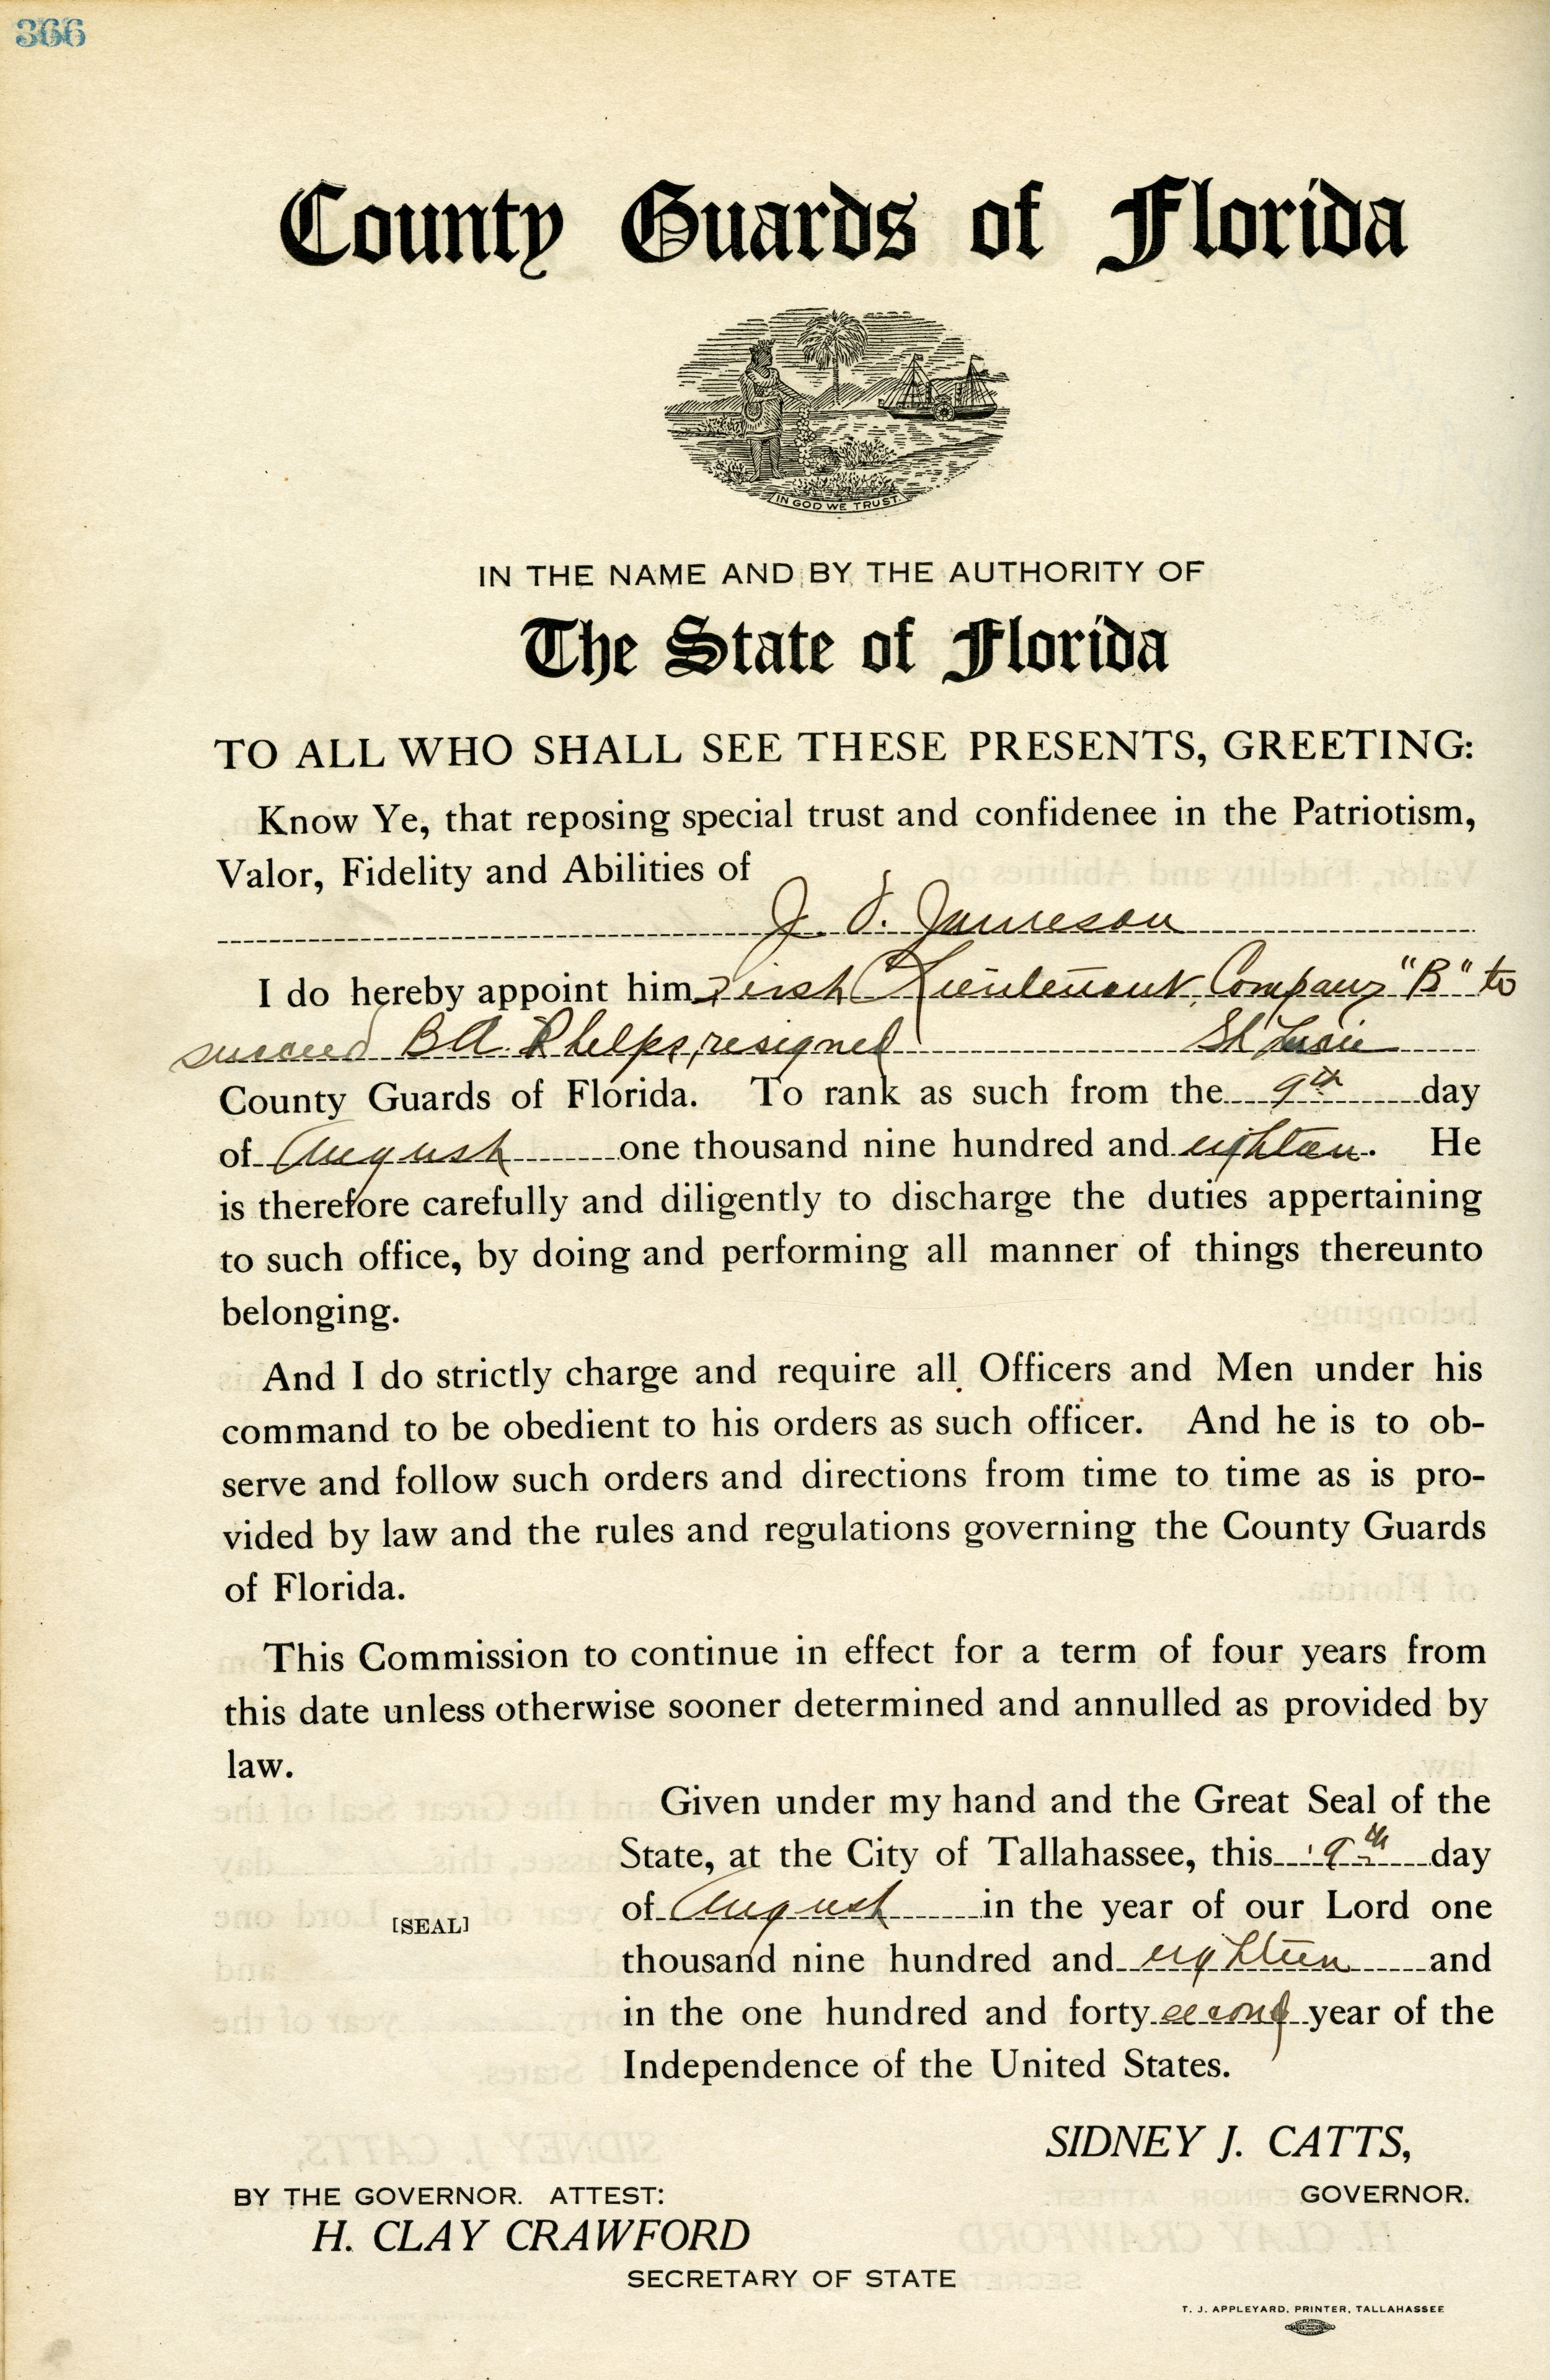 366
County Guards of Florida
IN GOD WE TRUST.
IN THE NAME AND BY THE AUTHORITY OF
The State of Florida
TO ALL WHO SHALL SEE THESE PRESENTS, GREETING:
Know Ye, that reposing special trust and confidenee in the Patriotism,
Valor, Fidelity and Abilities of
J. J. Jamieson
I do hereby appoint him First Lieutenant, Company "B" to
succeed B A Phelps, resigned St Lucie
County Guards of Florida. To rank as such from the 9th day
of August one thousand nine hundred and eighteen. He
is therefore carefully and diligently to discharge the duties appertaining
to such office, by doing and performing all manner of things thereunto
belonging.
And I do strictly charge and require all Officers and Men under his
command to be obedient to his orders as such officer. And he is to ob-
serve and follow such orders and directions from time to time as is pro-
vided by law and the rules and regulations governing the County Guards
of Florida.
This Commission to continue in effect for a term of four years from
this date unless otherwise sooner determined and annulled as provided by
law.
Given under my hand and the Great Seal of the
State, at the City of Tallahassee, this 9th day
of August in the year of our Lord one
[SEAL]
thousand nine hundred and eighteen and
in the one hundred and forty second year of the
Independence of the United States.
SIDNEY J. CATTS,
BY THE GOVERNOR. ATTEST: GOVERNOR.
H. CLAY CRAWFORD
SECRETARY OF STATE
T. J. APPLEYARD, PRINTER, TALLAHASSEE